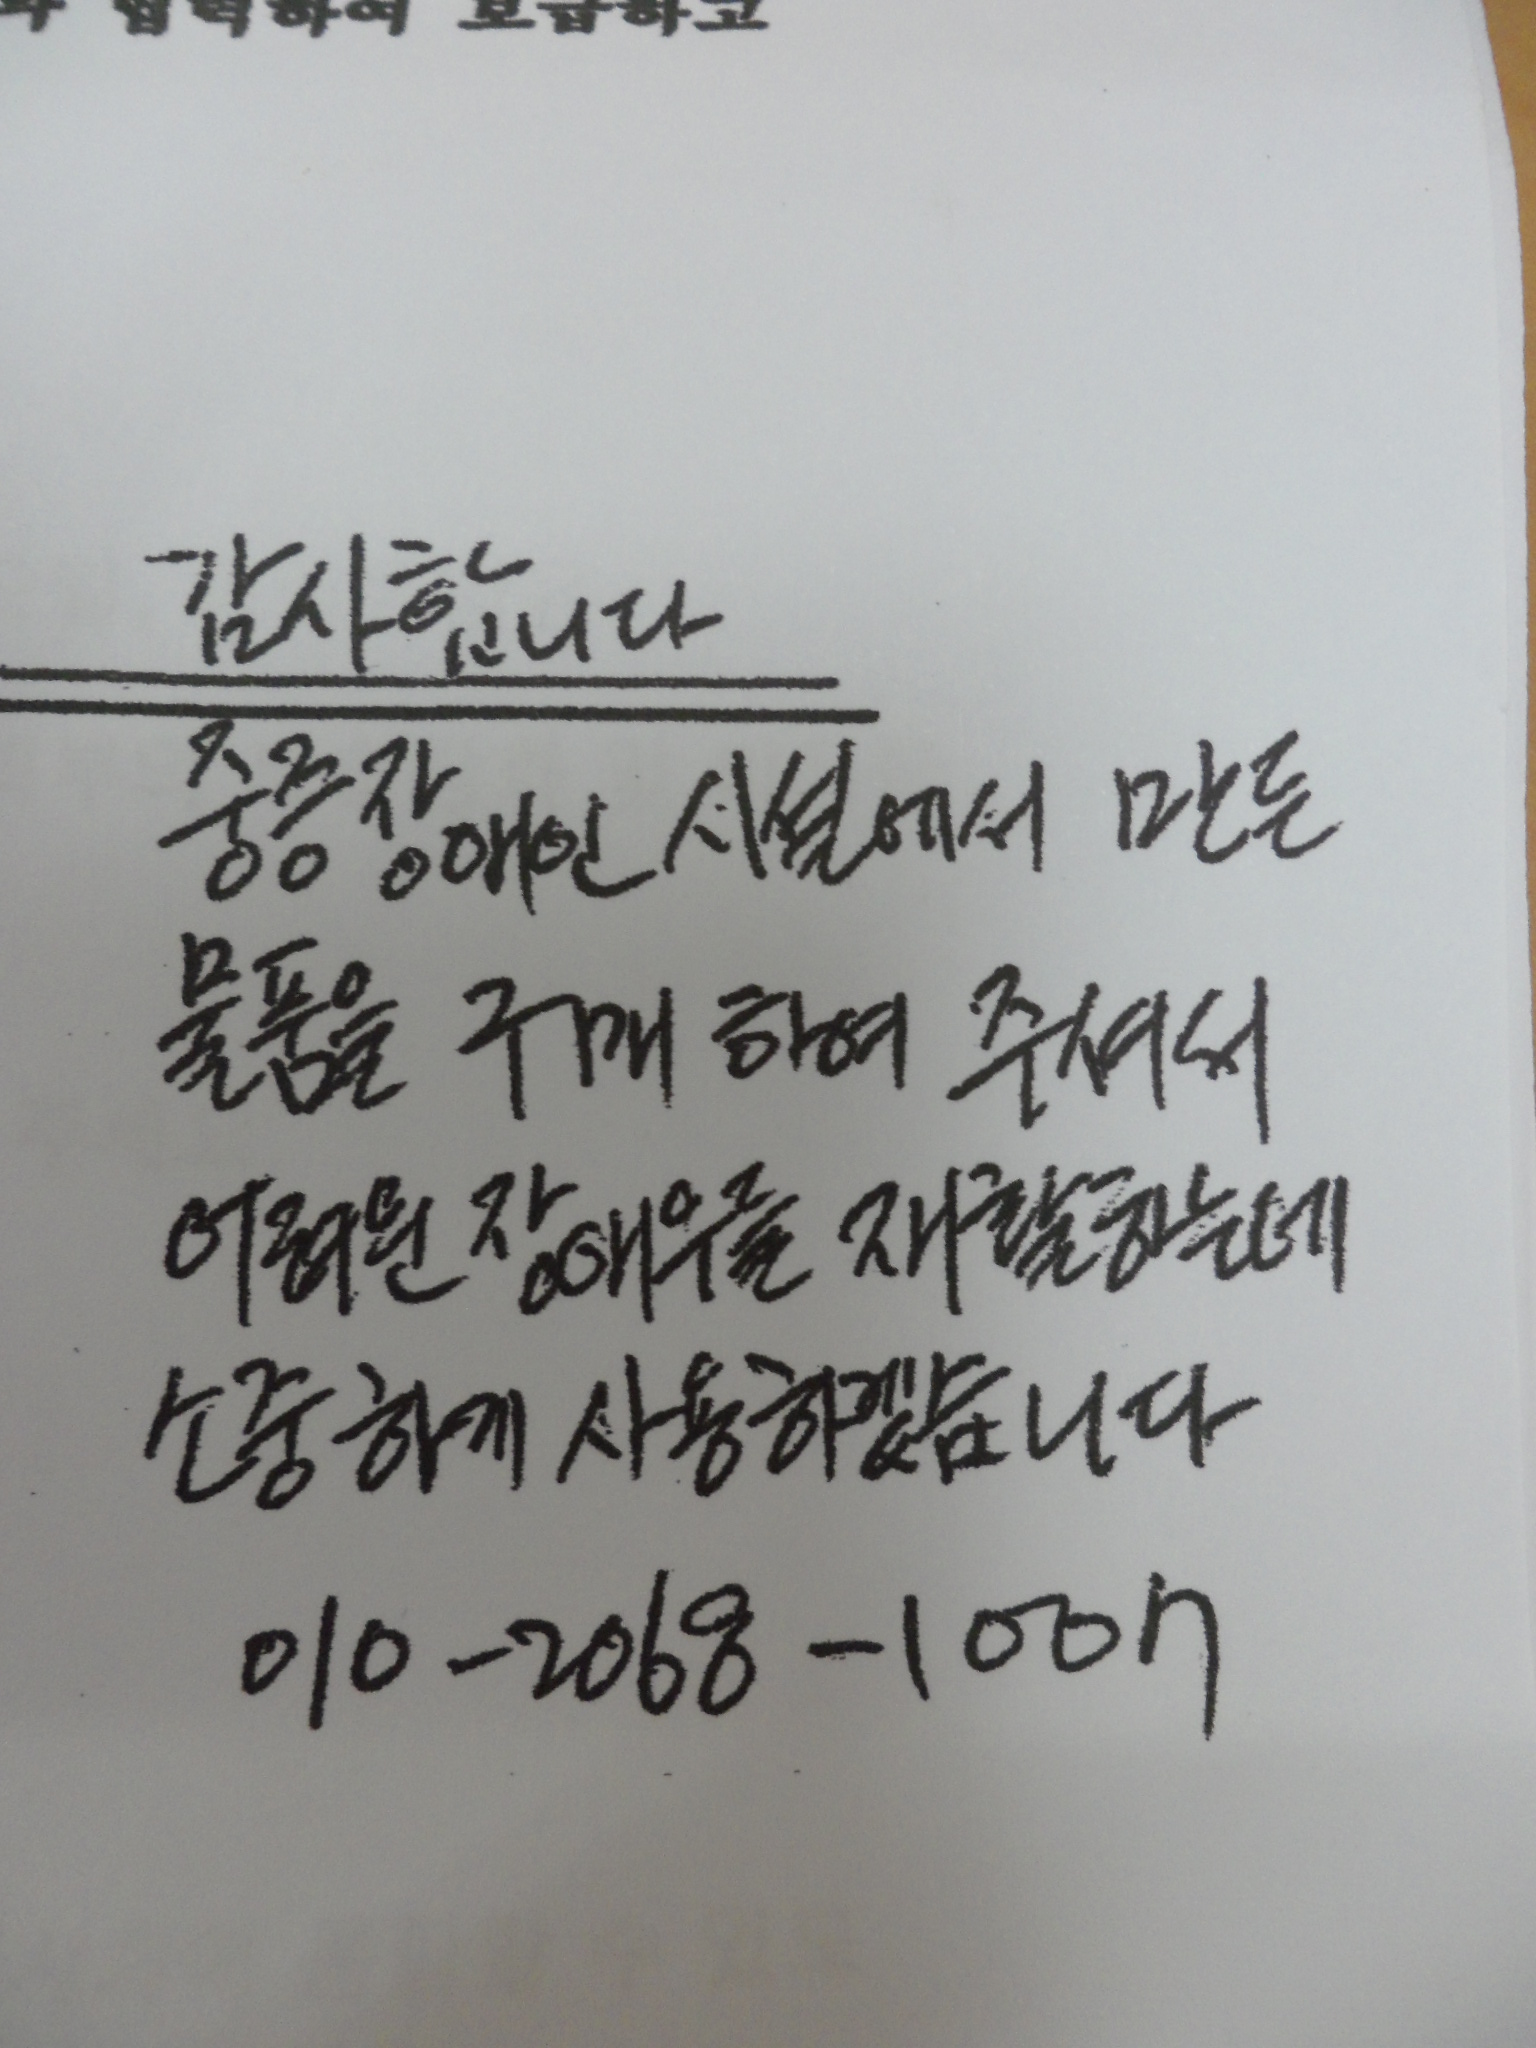 협력하여 보급하고
감사합니다
중증장애인 시설에서 만든
물품을 구매 하여 주셔서
어려운 장애우들 재활하는데
소중하게 사용하겠습니다
010-2068-1007